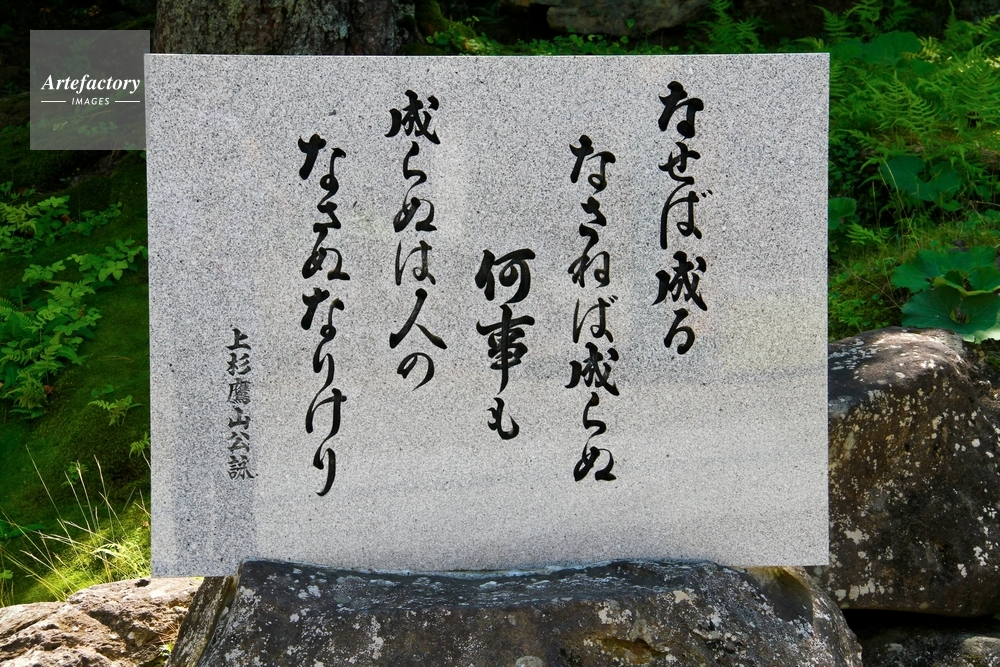 なせば成る
なさねば成らぬ
何事も
成らぬは人の
なさぬなりけり
上杉鷹山公詠
Artefactory
IMAGES